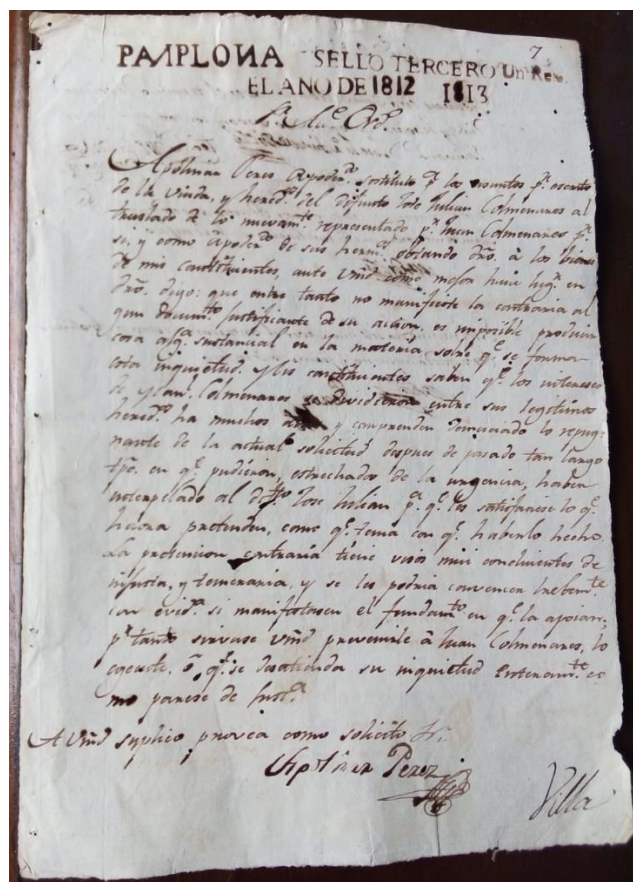 7
PAMPLONA SELLO TERCERO Un Real
EL AÑO DE 1812 1813
S. Alce. Ordo.
Apolinar Peres Apodero. sostituto pa. los asuntos pr. escrito
de la Viuda, y hereds. del Difunto Jose Julian Colmenares al
traslado de lo nuevamte. representado pr. Juan Colmenares pr.
si, y como Apodero. de sus herms. obtando dro. à los bienes
de mis constituientes, ante Vmd como mejor haia lugr. en
dro. digo: que entre tanto no manifieste la contraria al
gun documto. justificante de su accion, es imposible producir
cosa alga. sustancial en la materia sobre qe. se forma
esta inquietud. Mis constituientes saben qe. los intereses
de Colmenares se dividieron entre sus legitimos
hereds. ha muchos y comprenden demaciado lo repug
nante de la actual solicitud despues de pasado tan largo
tpo. en qe. pudieron, estrechados de la urgencia, haber
interpelado al dfto. Jose Julian pa. qe. les satisfaciese lo qe.
havra pretender, como qe. tenia con qe. haberlo hecho.
La pretencion contraria tiene visos mui concluientes de
injusta, y temeraria, y se les podria convencer
con evida. si manifestasen el fundamto. en qe. la apoian,
pr. tanto sirvase Vmd prevenirle à Juan Colmenares, lo
egecute, ô qe. se desatienda su inquietud enteramte. co
mo parese de Justa.
A Vmd suplico provea como solicito
Apolinar Perez
Villa